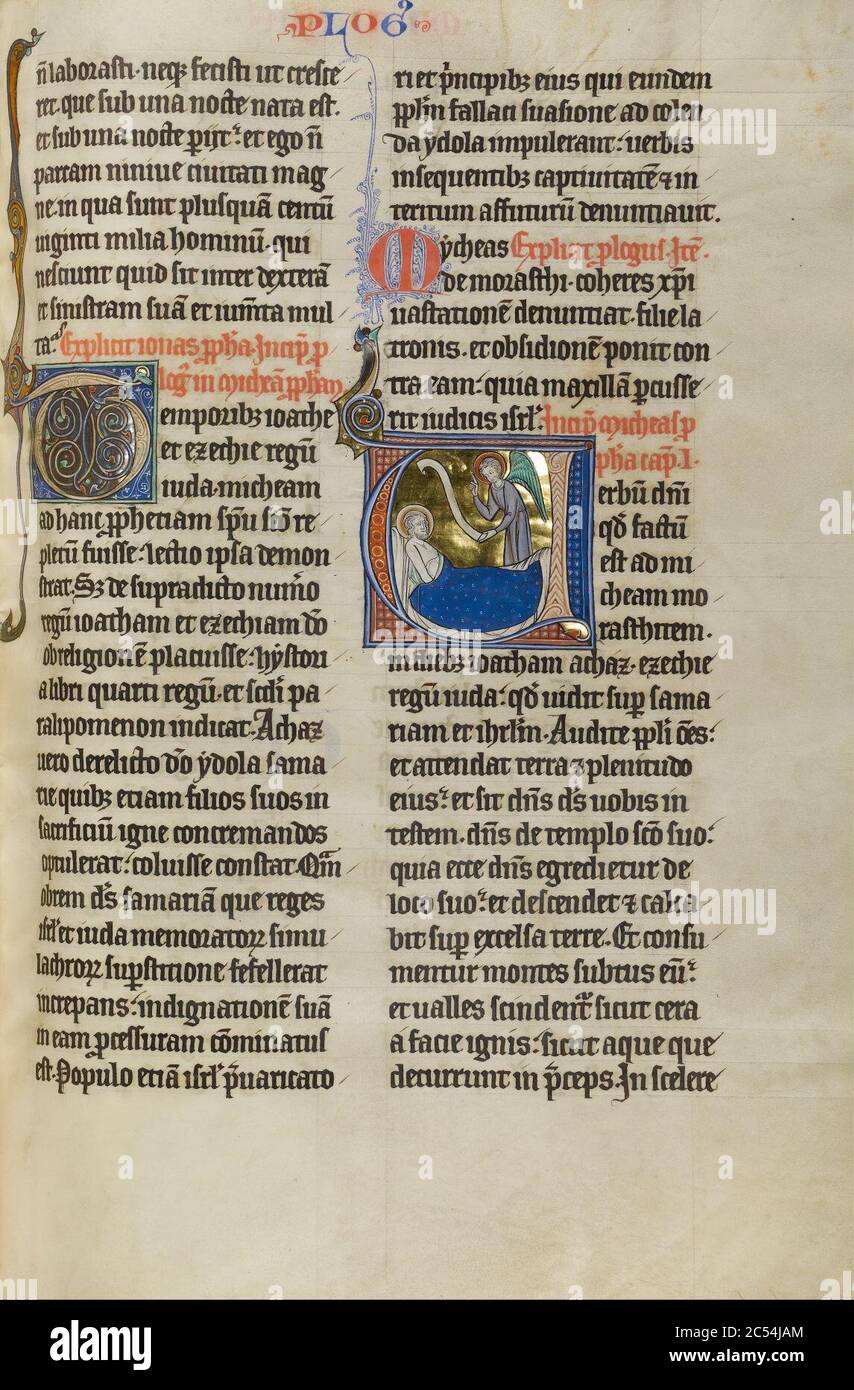 PLOG᷒
n̄ laborasti. neq; fecisti ut cresce
ret. que sub una nocte nata est.
et sub una nocte perijt. et ego n̄
parcam niniue ciuitati mag
ne. in qua sunt plusquā centū
uiginti milia hominū. qui
nesciunt quid sit inter dexterā
et sinistram suā et iumēta mul
ta. Explicit ionas ꝓpha. Incip̄ p
log᷒ in micheā ꝓpham
Temporib; ioathe
et ezechie regū
iuda. micheam
ad hanc ꝓphetiam sp̄u sc̄o re
pletū fuisse. lectio ipsa demon
strat. S; de supradicto num̄o
regū ioatham et ezechiam dō
ob religionē placuisse. hystori
a libri quarti regū. et scd̄i pa
ralipomenon indicat. Achaz
uero derelicto dō ydola sama
rie quib; etiam filios suos in
sacrificiū igne concremandos
optulerat. coluisse constat. Qm̄
obrem ds̄ samariā que reges
isrl̄ et iuda memoratorꝝ simu
lachrorꝝ suꝑstitione fefellerat
increpans. indignationē suā
in eam ꝓcessuram cōminatus
est. Populo etiā isrl̄ p̄uaricato
ri et p̄ncipib; eius qui eundem
ppl̄m fallaci suasione ad colen
da ydola impulerant. uerbis
insequentib; captiuitatē ⁊ in
teritum affuturū denuntiauit.
Mycheas Explicit plogus. Itē.
de morasthi. coheres xp̄i
uastationē denuntiat. filie la
tronis. et obsidionē ponit con
tra eam. quia maxillā ꝑcusse
rit iudicis isrl̄. Incip̄ micheas p
pha. cap̄. I.
Uerbū dn̄i
qd̄ factū
est ad mi
cheam mo
rasthitem.
in dieb; ioatham achaz. ezechie
regū iuda. qd̄ uidit suꝑ sama
riam et ihrl̄m. Audite ppl̄i oēs.
et attendat terra ⁊ plenitudo
eius. et sit dn̄s ds̄ uobis in
testem. dn̄s de templo sc̄o suo.
quia ecce dn̄s egredietur de
loco suo. et descendet ⁊ calca
bit suꝑ excelsa terre. Et consu
mentur montes subtus eū.
et ualles scindent᷑ sicut cera
a facie ignis. sicut aque que
decurrunt in p̄ceps. In scelere
alamy
alamy
Image ID: 2C54JAM
www.alamy.com